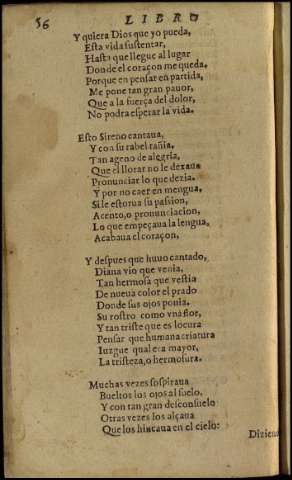 56
LIBRO
Y quiera Dios que yo pueda,
Esta vida sustentar,
Hasta que llegue al lugar
Donde el coraçon me queda.
Porque en pensar en partida,
Me pone tan gran pauor,
Que a la fuerça del dolor,
No podra esperar la vida.
Esto Sireno cantaua,
Y con su rabel tañia,
Tan ageno de alegria,
Que el llorar no le dexaua
Pronunciar lo que dezia.
Y por no caer en mengua,
Si le estorua su passion,
Acento, o pronunciacion,
Lo que empeçaua la lengua,
Acabaua el coraçon.
Y despues que huuo cantado,
Diana vio que venia,
Tan hermosa que vestia
De nueua color el prado
Donde sus ojos ponia.
Su rostro como vna flor,
Y tan triste que es locura
Pensar que humana criatura
Iuzgue qual era mayor,
La tristeza, o hermosura.
Muchas vezes sospiraua
Bueltos los ojos al suelo,
Y con tan gran desconsuelo
Otras vezes los alçaua
Que los hincaua en el cielo:
Diziend